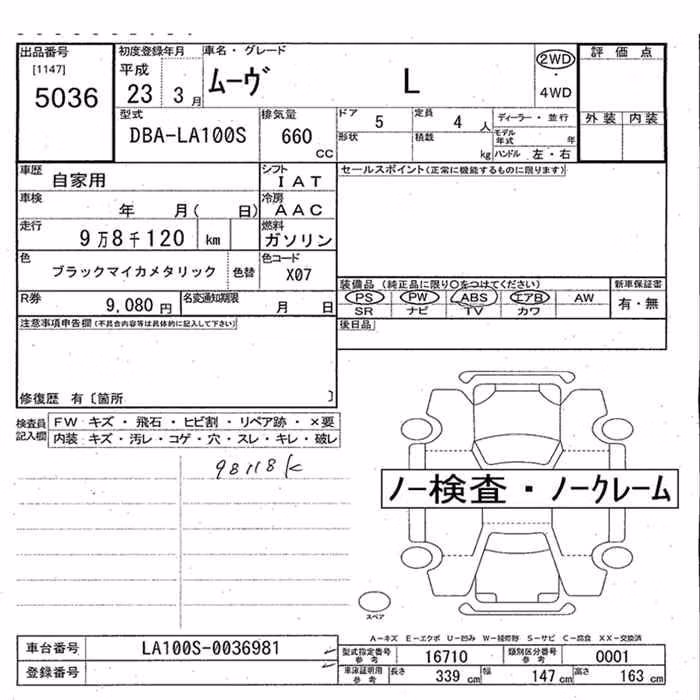 出品番号 初度登録年月 車名・グレード 評価点
[1147] 平成 ムーヴ L 2WD
5036 23 3月 ・ 4WD
型式 排気量 ドア 5 定員 4人 ディーラー・並行 外装 内装
DBA-LA100S 660 CC 形状 積載 kg モデル年式 年
ハンドル 左・右
車歴 自家用 シフト IAT セールスポイント(正常に機能するものに限ります)
車検 年 月( 日) 冷房 AAC
走行 9万8千120 km 燃料 ガソリン
色 ブラックマイカメタリック 色替 色コード X07
装備品 (純正品に限り○をつけてください) 新車保証書
R券 9,080円 名変通知期限 月 日 PS PW ABS エアB AW 有・無
SR ナビ TV カワ
注意事項申告欄(不具合内容等は具体的に記入して下さい) 後日品
修復歴 有〔箇所 〕
検査員記入欄 FW キズ・飛石・ヒビ割・リペア跡・×要
内装 キズ・汚レ・コゲ・穴・スレ・キレ・破レ
98118K
ノー検査・ノークレーム
スペア
A-キズ E-エクボ U-凹み W-補修跡 S-サビ C-腐食 XX-交換済
車台番号 LA100S-0036981 型式指定番号 参考 16710 類別区分番号 参考 0001
登録番号 車庫証明用 参考 長さ 339cm 幅 147cm 高さ 163cm